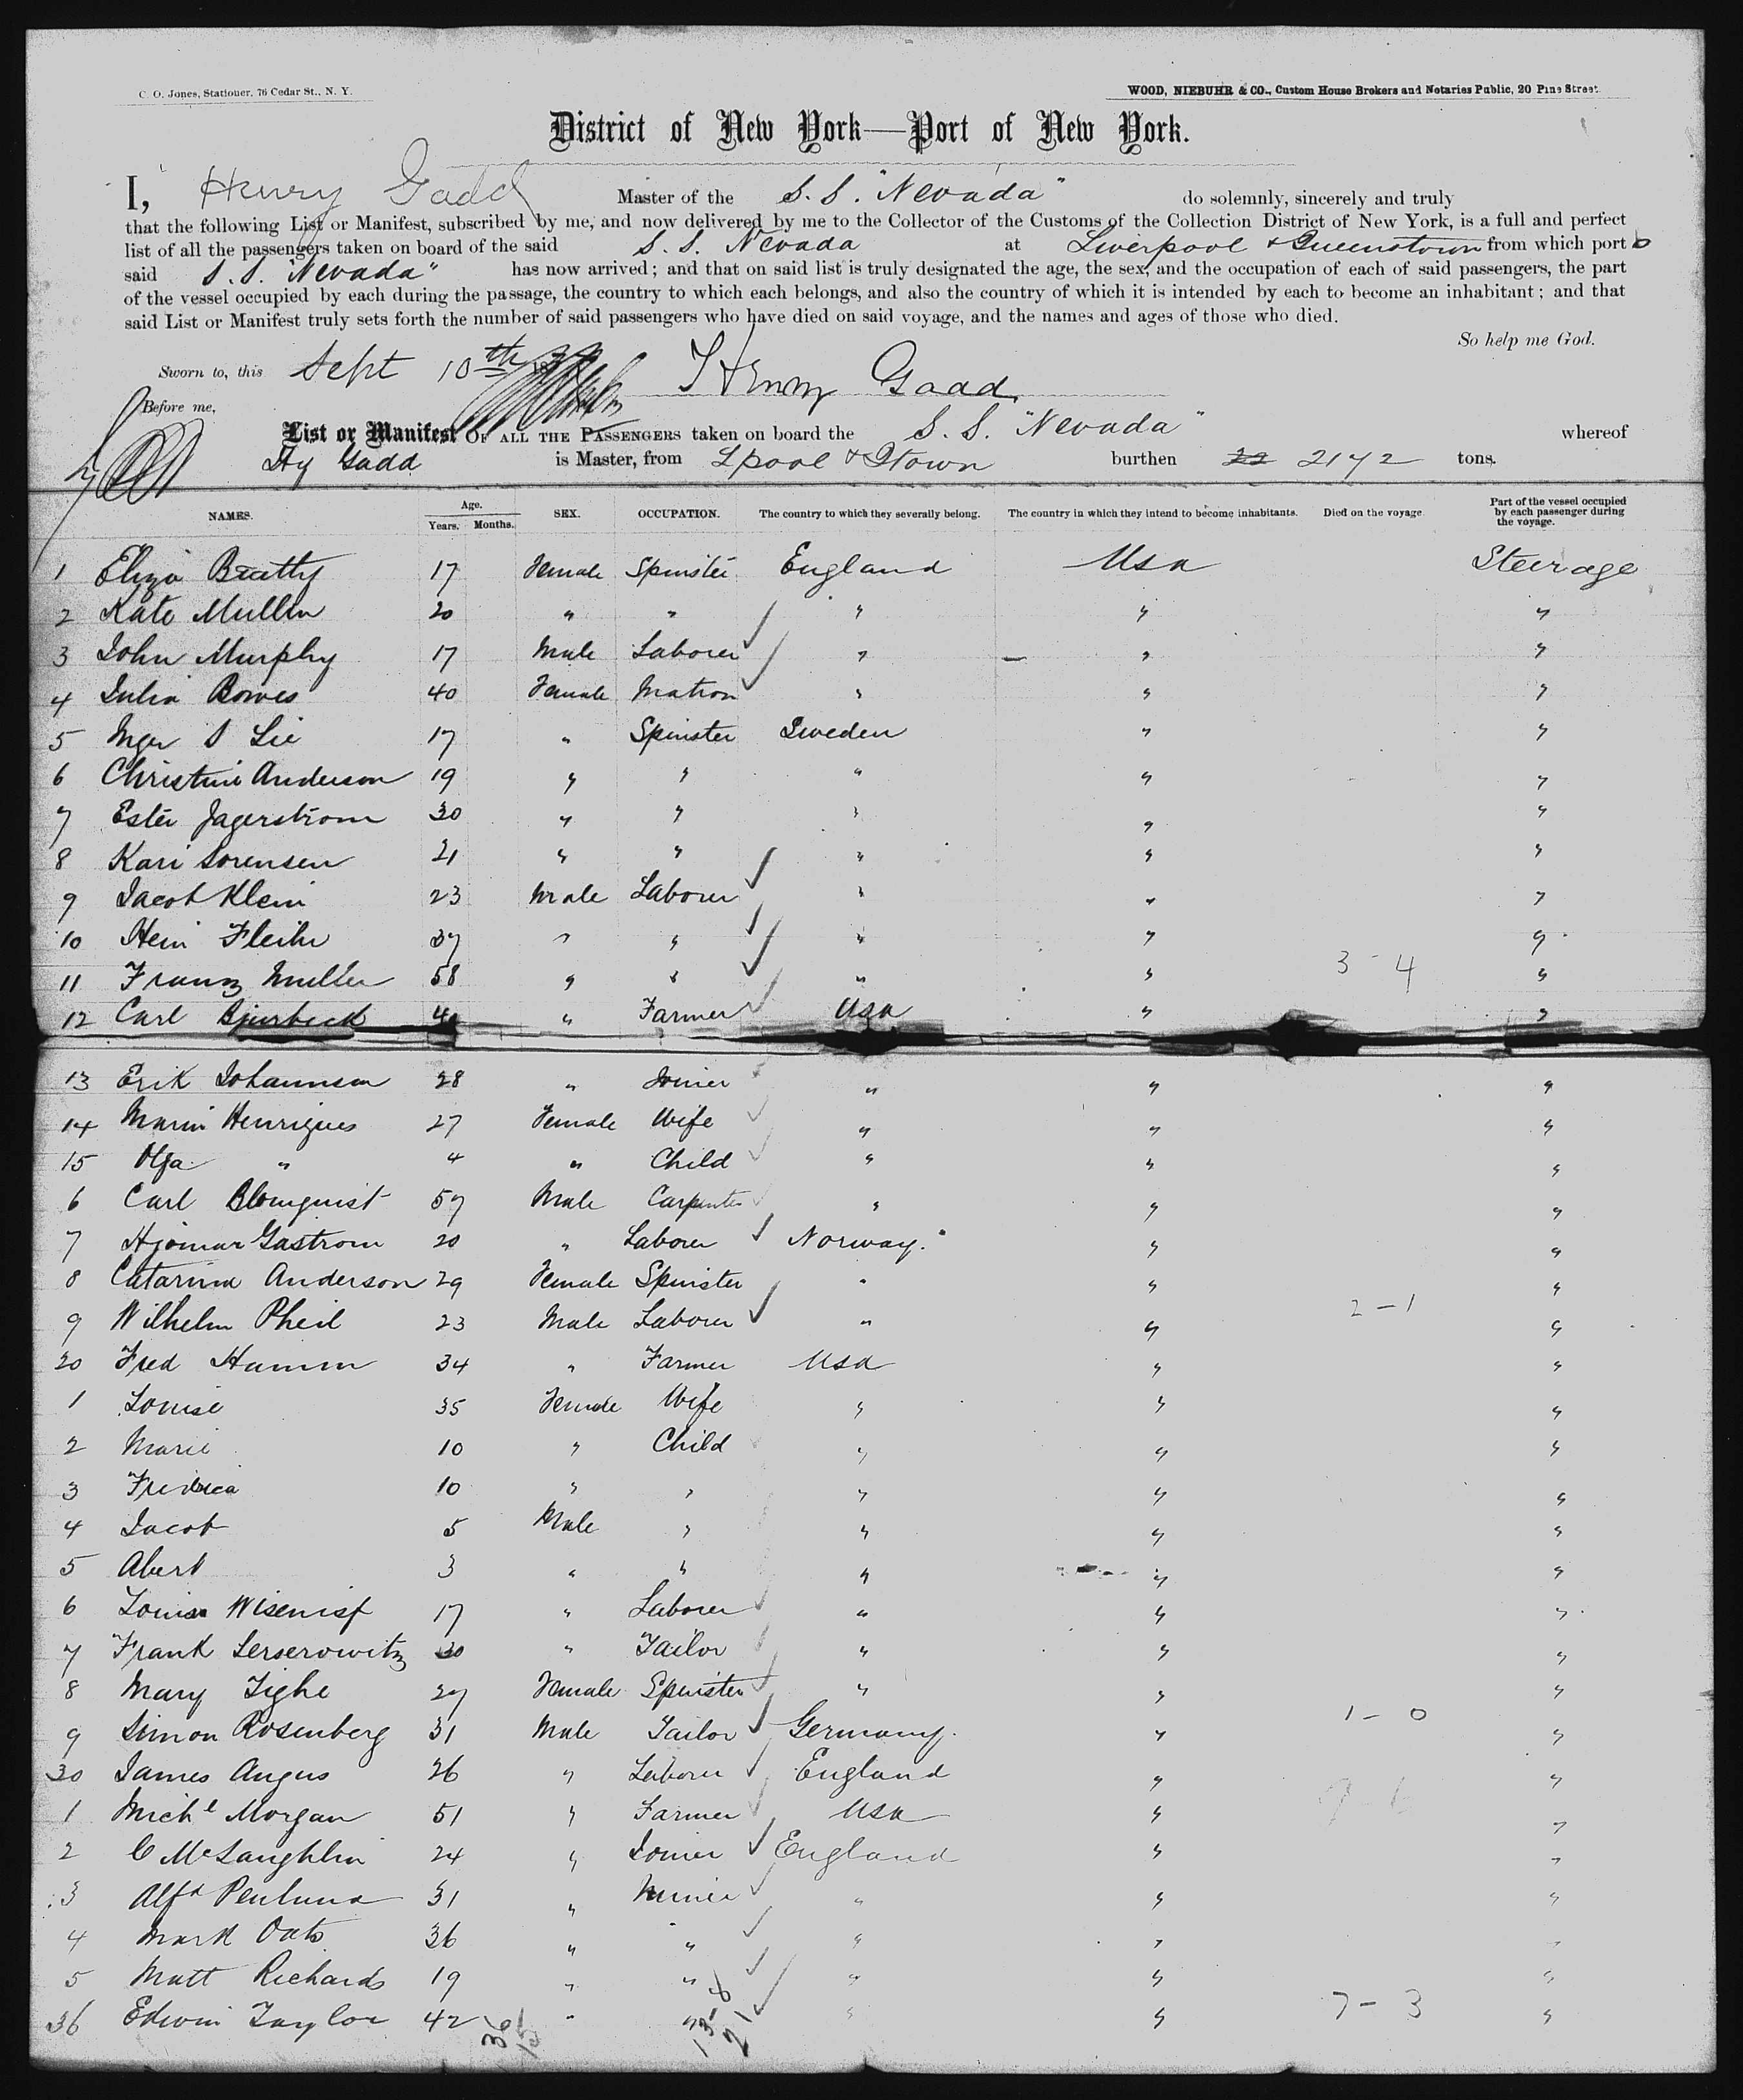 C. O. Jones, Stationer, 76 Cedar St., N. Y.
WOOD, NIEBUHR & CO., Custom House Brokers and Notaries Public, 20 Pine Street.
District of New York—Port of New York.
I, Henry Gadd Master of the S. S. "Nevada" do solemnly, sincerely and truly
that the following List or Manifest, subscribed by me, and now delivered by me to the Collector of the Customs of the Collection District of New York, is a full and perfect
list of all the passengers taken on board of the said S. S. Nevada at Liverpool & Queenstown from which port
said S. S. "Nevada" has now arrived; and that on said list is truly designated the age, the sex, and the occupation of each of said passengers, the part
of the vessel occupied by each during the passage, the country to which each belongs, and also the country of which it is intended by each to become an inhabitant; and that
said List or Manifest truly sets forth the number of said passengers who have died on said voyage, and the names and ages of those who died.
So help me God.
Sworn to, this Sept 10th 18 Henry Gadd
Before me,
List or Manifest OF ALL THE PASSENGERS taken on board the S. S. "Nevada" whereof
Hy Gadd is Master, from Lpool & Qtown burthen 22 2142 tons.
NAMES. Age. Years. Months. SEX. OCCUPATION. The country to which they severally belong. The country in which they intend to become inhabitants. Died on the voyage. Part of the vessel occupied by each passenger during the voyage.
1 Eliza Beatty 17 Female Spinster England Usa Steerage
2 Kate Mullen 20 " " " " "
3 John Murphy 17 Male Laborer " " "
4 Julia Bowes 40 Female Matron " " "
5 Inger S Lie 17 " Spinster Sweden " "
6 Christine Anderson 19 " " " " "
7 Ester Jagerstrom 30 " " " " "
8 Kari Sorensen 21 " " " " "
9 Jacob Klein 23 Male Laborer " " "
10 Hein 37 " " " " "
11 Franz Muller 58 " " " " 3-4 "
12 Carl Bjurbeck " Farmer Usa " "
13 Erik Johannson 28 " Joiner " " "
14 Marin Henriques 27 Female Wife " " "
15 Olga " 4 " Child " " "
6 Carl Blomquist 57 Male Carpenter " " "
7 Hjomar Gastrom 20 " Laborer Norway. " "
8 Catarina Anderson 29 Female Spinster " " "
9 Wilhelm Pheil 23 Male Laborer " " 2-1 "
20 Fred Hamm 34 " Farmer Usa " "
1 Louise 35 Female Wife " " "
2 Marie 10 " Child " " "
3 Fredrica 10 " " " " "
4 Jacob 5 Male " " " "
5 Abert 3 " " " " "
6 Louise 17 " Laborer " " "
7 Frank Lerserowitz 30 " Tailor " " "
8 Mary Tighe 27 Female Spinster " " "
9 Simon Rosenberg 31 Male Tailor Germany. " 1-0 "
30 James Angus 26 " Laborer England " "
1 Michl Morgan 51 " Farmer Usa " "
2 C McLaughlin 24 " Joiner England " "
3 Alfd Penluna 31 " Miner " " "
4 Mark Oats 36 " " " " "
5 Matt Richards 19 " " " " "
36 Edwin Taylor 42 " " " " 7-3 "
36
15
13-8
21